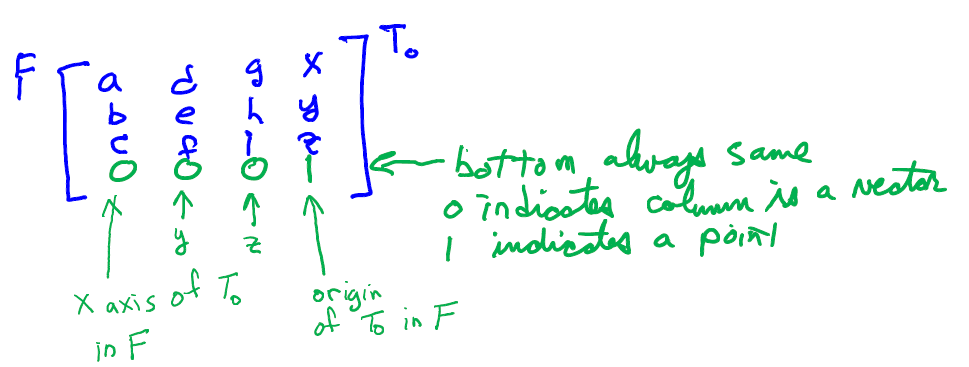 F [ a d g x ] To
b e h y
c f i z
0 0 0 1 ← bottom always same
0 indicates column is a vector
1 indicates a point
y z
x axis of To
in F
origin
of To in F